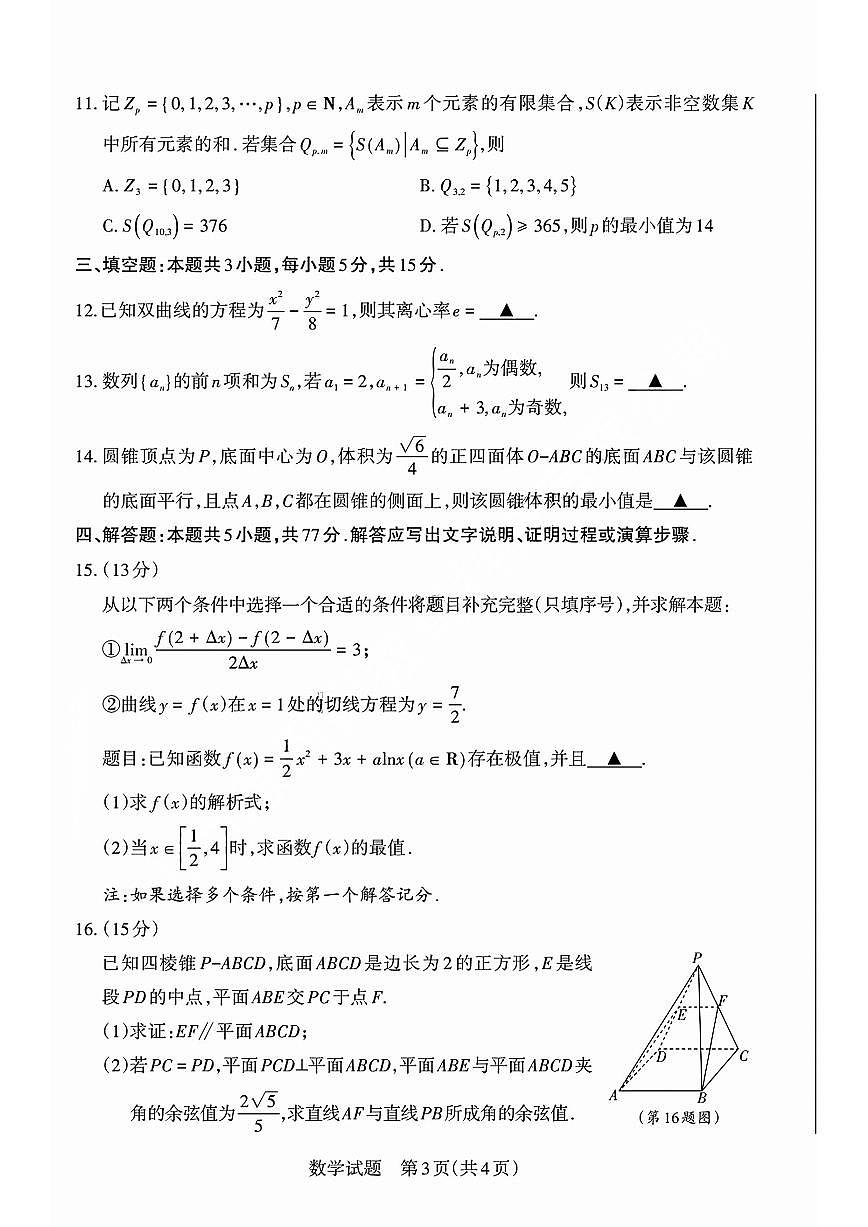 11. 记 Zₚ = {0,1,2,3,⋯,p},p ∈ N,Aₘ 表示 m 个元素的有限集合,S(K)表示非空数集 K
中所有元素的和. 若集合 Q_{p,m} = {S(Aₘ)|Aₘ ⊆ Zₚ},则
A. Z₃ = {0,1,2,3} B. Q_{3,2} = {1,2,3,4,5}
C. S(Q_{10,3}) = 376 D. 若 S(Q_{p,2}) ≥ 365,则 p 的最小值为 14
三、填空题:本题共 3 小题,每小题 5 分,共 15 分.
12. 已知双曲线的方程为 x²/7 - y²/8 = 1,则其离心率 e = ▲ .
13. 数列{aₙ}的前 n 项和为 Sₙ,若 a₁ = 2,aₙ₊₁ = { aₙ/2, aₙ为偶数, aₙ + 3, aₙ为奇数, 则 S₁₃ = ▲ .
14. 圆锥顶点为 P,底面中心为 O,体积为 √6/4 的正四面体 O-ABC 的底面 ABC 与该圆锥
的底面平行,且点 A,B,C 都在圆锥的侧面上,则该圆锥体积的最小值是 ▲ .
四、解答题:本题共 5 小题,共 77 分. 解答应写出文字说明、证明过程或演算步骤.
15. (13分)
从以下两个条件中选择一个合适的条件将题目补充完整(只填序号),并求解本题:
① lim_{Δx→0} (f(2 + Δx) - f(2 - Δx))/(2Δx) = 3;
②曲线 y = f(x)在 x = 1 处的切线方程为 y = 7/2.
题目:已知函数 f(x) = 1/2 x² + 3x + alnx (a ∈ R)存在极值,并且 ▲ .
(1)求 f(x)的解析式;
(2)当 x ∈ [1/2, 4] 时,求函数 f(x)的最值.
注:如果选择多个条件,按第一个解答记分.
16. (15分)
已知四棱锥 P-ABCD,底面 ABCD 是边长为 2 的正方形,E 是线
段 PD 的中点,平面 ABE 交 PC 于点 F.
(1)求证:EF∥平面 ABCD;
(2)若 PC = PD,平面 PCD⊥平面 ABCD,平面 ABE 与平面 ABCD 夹
角的余弦值为 2√5/5,求直线 AF 与直线 PB 所成角的余弦值.
P
E
F
D
C
A
B
(第16题图)
数学试题 第3页(共4页)